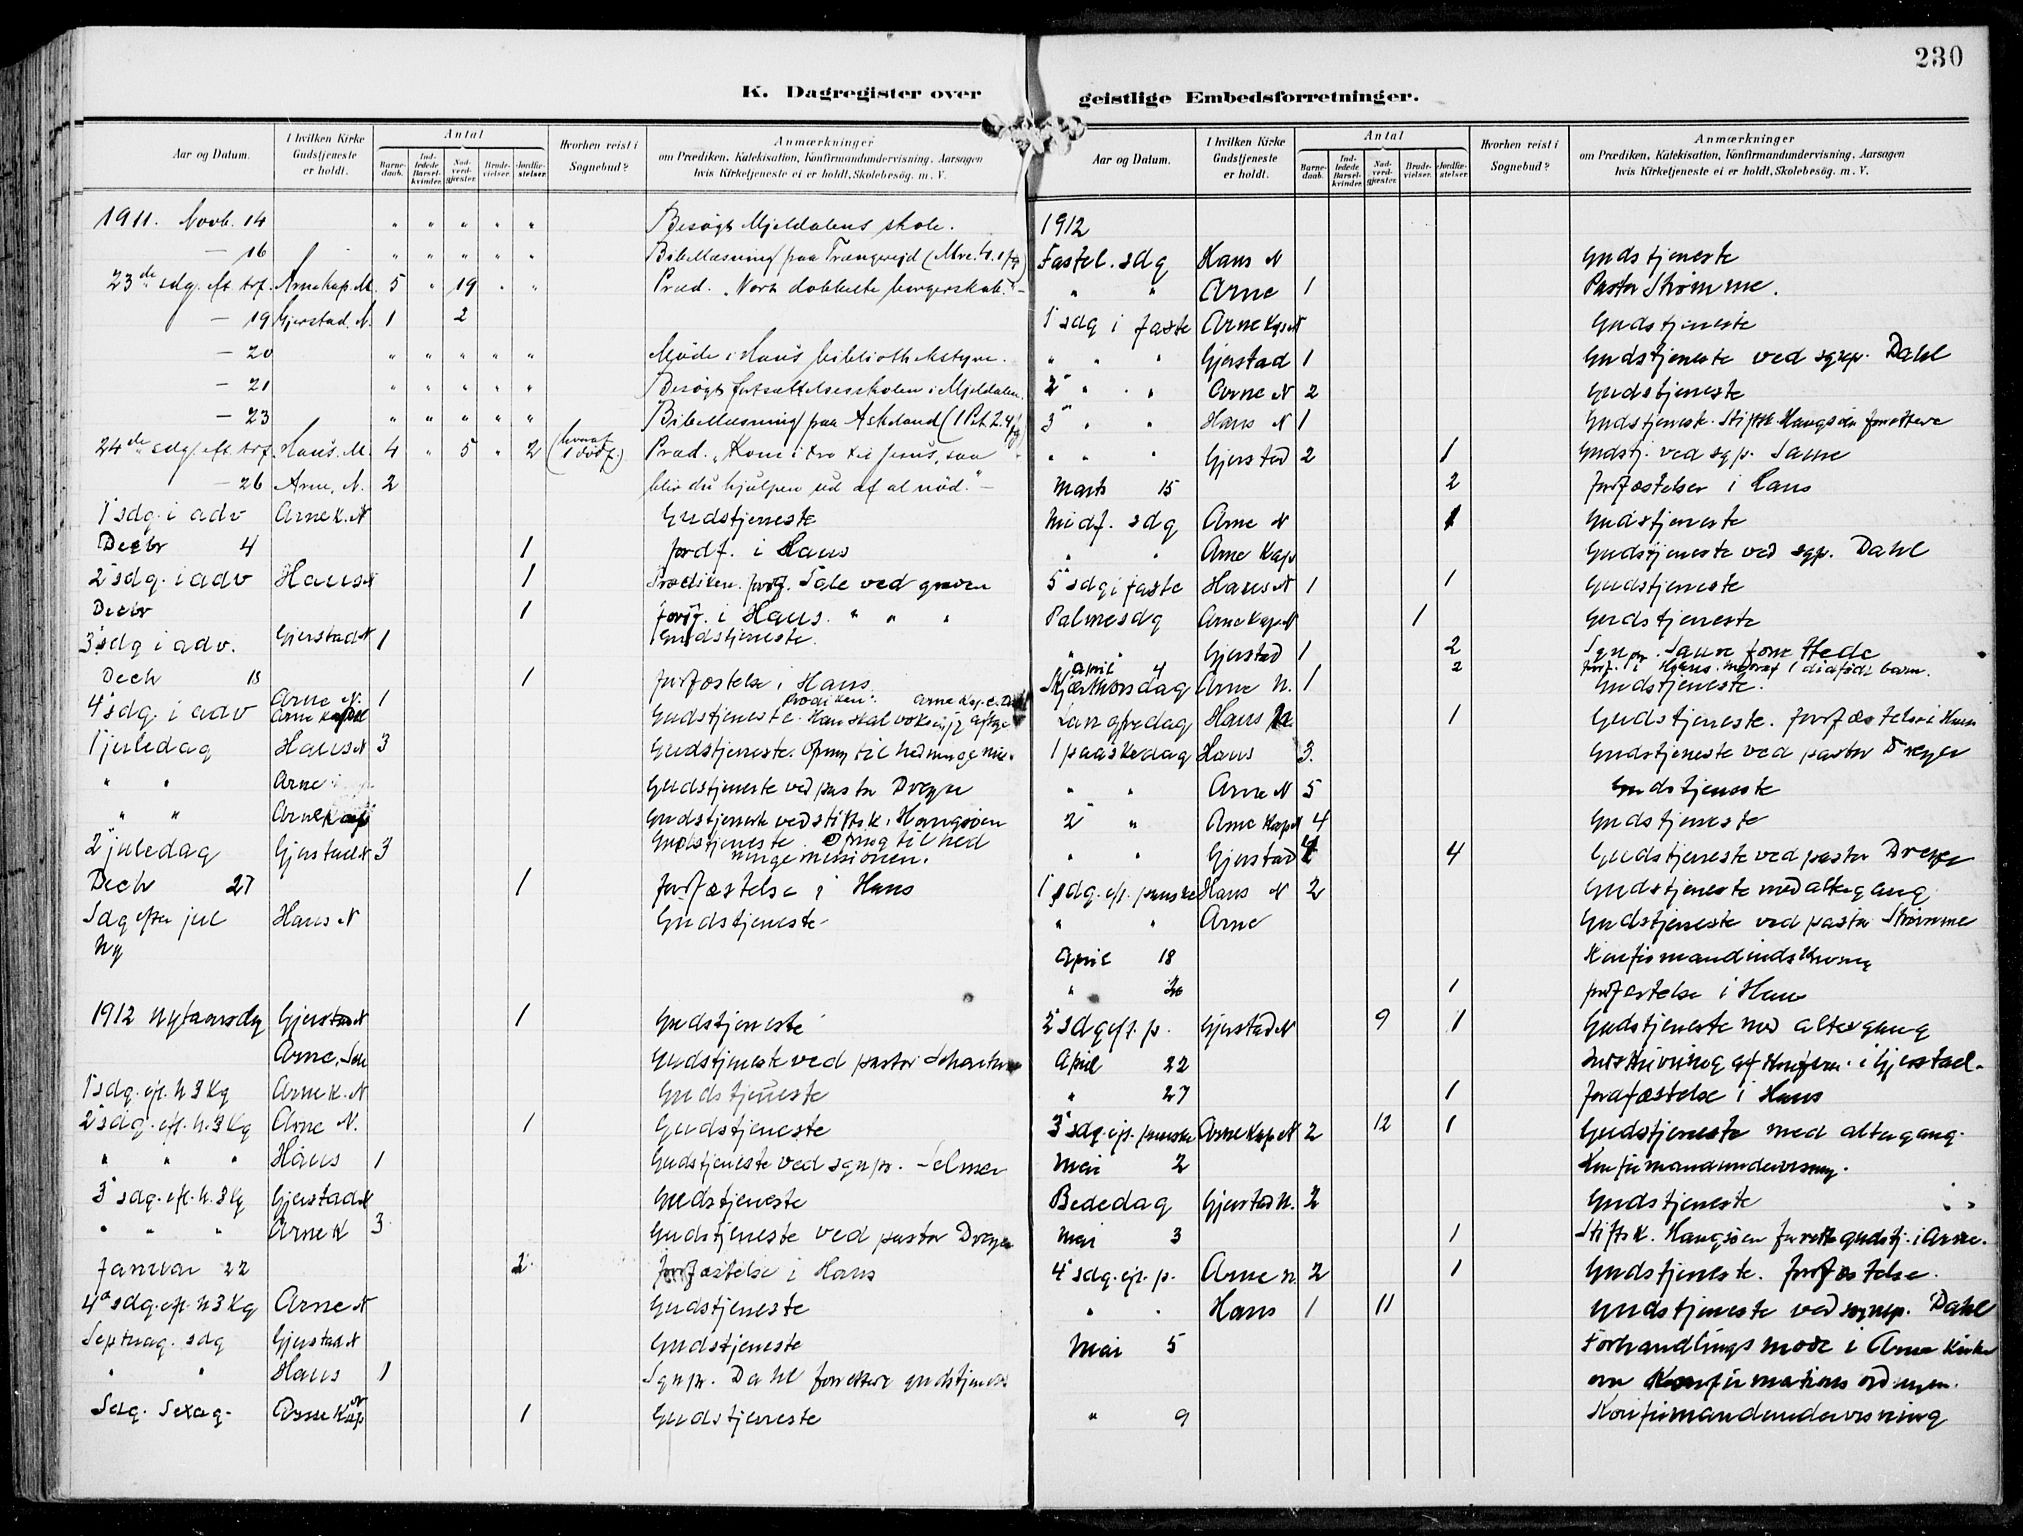 230
K. Dagregister over
Aar og Datum.
I hvilken Kirke Gudstjeneste er holdt.
Antal
Barnedaab.
Indledede Barselkvinder.
Nadverdgjester.
Brudevielser.
Jordfæstelser.
Hvorhen reist i Sognebud?
Anmærkninger
om Prædiken, Katekisation, Konfirmandundervisning, Aarsagen
hvis Kirketjeneste ei er holdt, Skolebesøg. m. V.
1911. Novb. 14 " " " " " Besøgt Mjeldalens skole.
— 16 " " " " " Bibellæsning paa Trengereid (Mrc. 4.
23de sdg. eft. trf. Arne kap. M. 5 " 19 " " Præd. „Vort dobbelte borgerskab." —
— 19 Gjerstad. N. 1 2
— 20 " " " " " Møde i Haus bibliothekstyre.
— 21 " " " " " Besøgt fortsættelsesskolen i Mjeldalen.
— 23 " " " " " Bibellæsning paa Askeland (1 Pet. 2.4
24de sdg. eft. trf. Haus. M. 4 " 5 " 2 (hvoraf 1 dødf.) Præd. „Kom i tro til Jesus, saa
— 26 Arne. N. 2 blir du hjulpen ud af al nød." —
1 sdg. i adv Arne K. N Gudstjeneste
Decbr 4 1 jordf. i Haus
2 sdg. i adv Haus N 1 Prædiken. Tale ved graven
Decbr 1 jordf. i Haus. " " "
3 sdg i adv. Gjerstad N 1 Gudstjeneste.
Decb 1 jordfæstelse i Haus
4 sdg. i adv Arne N. 1 prædiken:
Arne Kap Gudstjeneste. Han skal vokse,
1 juledag Haus N 3 Gudstjeneste. Ofring til hedningemis.
" " Arne Gudstjeneste ved pastor Dreyer
" " Arne Kap Gudstjeneste ved stiftsk. Haugsøen
2 juledag Gjerstad N 3 Gudstjeneste. Ofring til hed
ningemissionen.
Decb 27 1 jordfæstelse i Haus
Sdg efter jul Haus N Gudstjeneste
Ny
1912 Nytaarsdg Gjerstad N 1 Gudstjeneste
Arne, Gudstjeneste ved pastor
1 sdg. ef. H 3 Kg Arne K. N Gudstjeneste
2 sdg. ef. H. 3 Kg Arne N. 1 Gudstjeneste
" " " Haus 1 Gudstjeneste ved sgnpr. Selmer
3 sdg. ef. H. 3 Kg Gjerstad N Gudstjeneste
" " " Arne K 3 Gudstjeneste ved pastor Dreyer
Januar 22 2 jordfæstelse i Haus
4 sdg. ef. H 3 Kg Arne N Gudstjeneste
Septuag. sdg Gjerstad N Gudstjeneste
" " Haus 1 Sgnpr. Dahl forrettere gudstjeneste
Sdg. Sexag. Arne Kap N 1 Gudstjeneste
geistlige Embedsforretninger.
Aar og Datum.
I hvilken Kirke Gudstjeneste er holdt.
Antal
Barnedaab.
Indledede Barselkvinder.
Nadverdgjester.
Brudevielser.
Jordfæstelser.
Hvorhen reist i Sognebud?
Anmærkninger
om Prædiken, Katekisation, Konfirmandundervisning, Aarsagen
hvis Kirketjeneste ei er holdt, Skolebesøg. m. V.
1912
Fastel. sdg Haus N Gudstjeneste
" " Arne 1 Pastor Strømme.
1 sdg i faste Arne Kap N Gudstjeneste
" " " Gjerstad 1 Gudstjeneste ved sgnp. Dahl
2 " " " Arne N 2 Gudstjeneste
3 " " Haus N 1 Gudstjenest. Stiftsk. Haugsøen forrettere
" " " Gjerstad 2 1 Gudstj. ved sgp. Saure
Marts 15 2 jordfæstelser i Haus
Midf. sdg Arne N 1 Gudstjeneste
" " Arne Kap Gudstjeneste ved sgp. Dahl
5 sdg i faste Haus N 1 1 Gudstjeneste
Palmesdg Arne Kap N 1 Gudstjeneste
" " Gjerstad 1 2 Sgnpr. Saure forrettede
April 4 2 jordf. i Haus. hvoraf 1 dødfødt barn.
Skjærthorsdag Arne N. 1 Gudstjeneste.
Langfredag Haus N 1 Gudstjeneste. jordfæstelse i Haus
1 paaskedag Haus 3. Gudstjeneste ved pastor Dreyer
" " Arne N 5 Gudstjeneste
2 " Arne Kap N 4 Gudstjeneste
" " Gjerstad 4 Gudstjeneste ved pastor Dreyer
1 sdg. ef. paaske Haus N 2 Gudstjeneste med altergang
" " Arne Gudstjeneste ved pastor Strømme
April 18 Konfirmandindskrivning
" 20 1 jordfæstelse i Haus
2 sdg ef. p. Gjerstad N 9 1 Gudstjeneste med altergang
April 22 Indskrivning af Konfirm. i Gjerstad.
" 27 1 Jordfæstelse i Haus
3 sdg. ef. paaske Arne Kap N 2 12 1 Gudstjeneste med altergang.
Mai 2 Konfirmandundervisning.
Bededag Gjerstad N. 2 Gudstjeneste
Mai 3 1 Stiftsk. Haugsøen forrette gudstj. i Arne.
4 sdg. ef. p. Arne N. 2 1 Gudstjeneste. jordfæstelse.
" " Haus 1 11 Gudstjeneste ved sognep. Dahl
Mai 5 Forhandlingsmøde i Arne Kirke
om Konfirmationsordningen.
" 9 Konfirmandundervisning